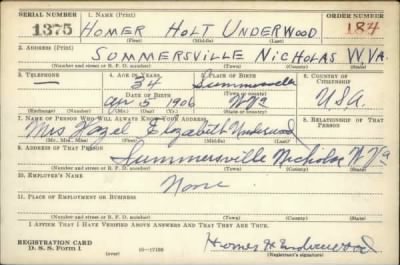 SERIAL NUMBER 1. NAME (Print) ORDER NUMBER
1375 HOMER HOLT UNDERWOOD 184
(First) (Middle) (Last)
2. ADDRESS (Print)
SUMMERSVILLE NICHOLAS W.VA.
(Number and street or R. F. D. number) (Town) (County) (State)
3. TELEPHONE 4. AGE IN YEARS 5. PLACE OF BIRTH 6. COUNTRY OF CITIZENSHIP
34 Summersville
DATE OF BIRTH (Town or county)
5 1906 W Va U.S.A.
(Exchange) (Number) (Mo.) (Day) (Yr.) (State or country)
7. NAME OF PERSON WHO WILL ALWAYS KNOW YOUR ADDRESS 8. RELATIONSHIP OF THAT PERSON
Mrs Hazel Elizabeth Underwood
(Mr., Mrs., Miss) (First) (Middle) (Last)
9. ADDRESS OF THAT PERSON
Summersville Nicholas W Va
(Number and street or R. F. D. number) (Town) (County) (State)
10. EMPLOYER'S NAME
None
11. PLACE OF EMPLOYMENT OR BUSINESS
(Number and street or R. F. D. number) (Town) (County) (State)
I AFFIRM THAT I HAVE VERIFIED ABOVE ANSWERS AND THAT THEY ARE TRUE.
REGISTRATION CARD
D. S. S. Form 1 (over) 16-17105 Homer H Underwood
(Registrant's signature)